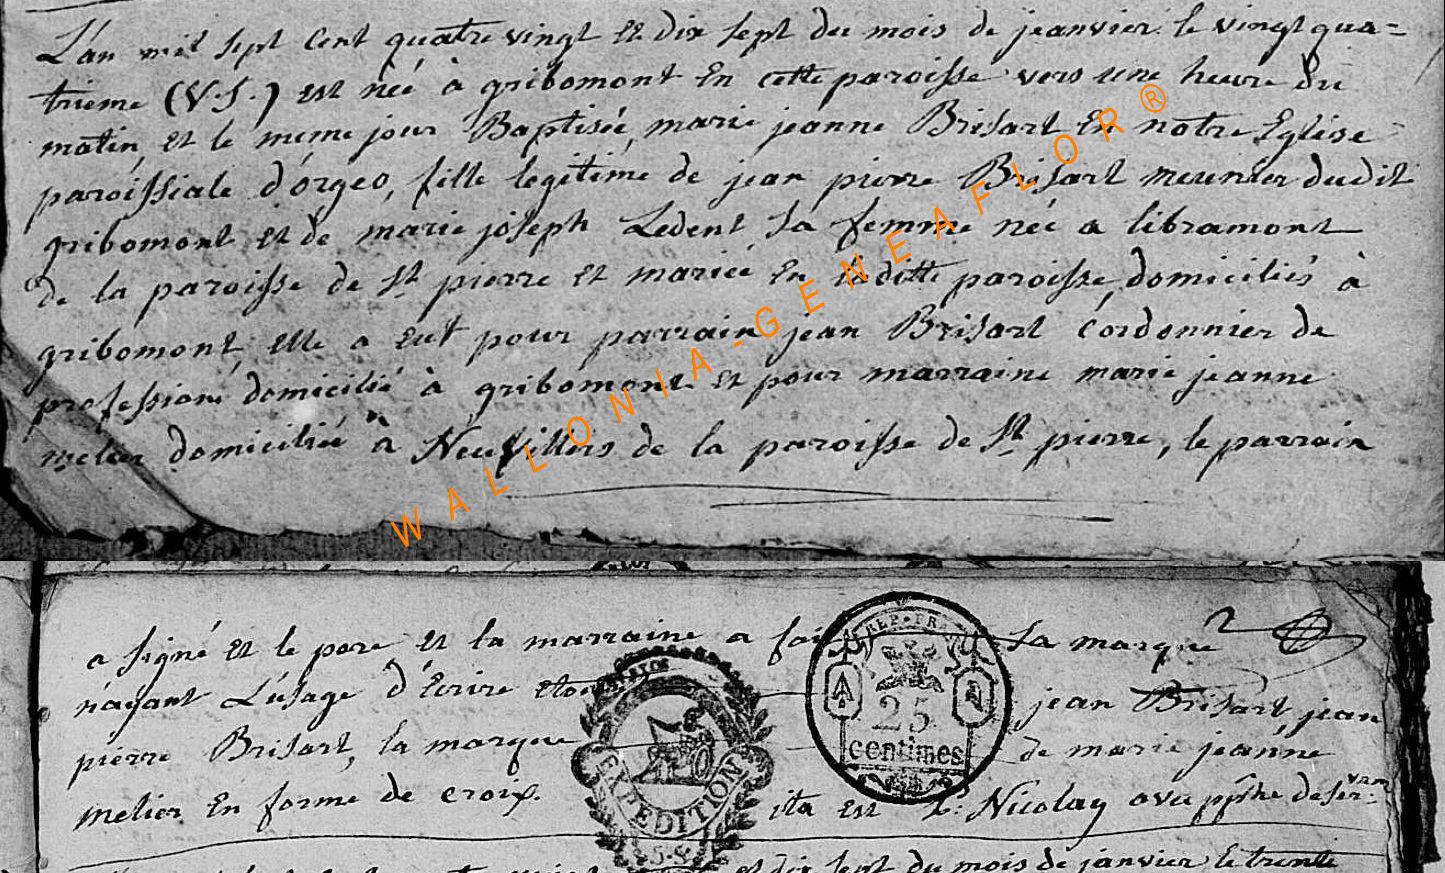 L'an mil sept cent quatre vingt et dix sept du mois de janvier le vingt qua=
trieme (V.S.) est née à gribomont en cette paroisse vers une heure du
matin et le meme jour Baptisée marie jeanne Brisart en notre Eglise
paroissiale d'orgeo, fille legitime de jean pierre Brisart meunier dudit
gribomont et de marie joseph Ledent sa femme née a libramont
de la paroisse de St pierre et mariée en laditte paroisse domiciliés à
gribomont elle a eut pour parrain jean Brisart cordonnier de
profession domicilié à gribomont et pour marraine marie jeanne
melier domiciliée à Neufvillers de la paroisse de St pierre, le parrain
WALLONIA-GENEAFLOR®
a signé et le pere et la marraine a fait sa marque
n'ayant L'usage d'Ecrire jean Brisart jean
pierre Brisart, la marque de marie jeanne
melier en forme de croix. ita est Nicolay
REP. FRA
25
centimes
EXPEDITION
et dix sept du mois de janvier le trente